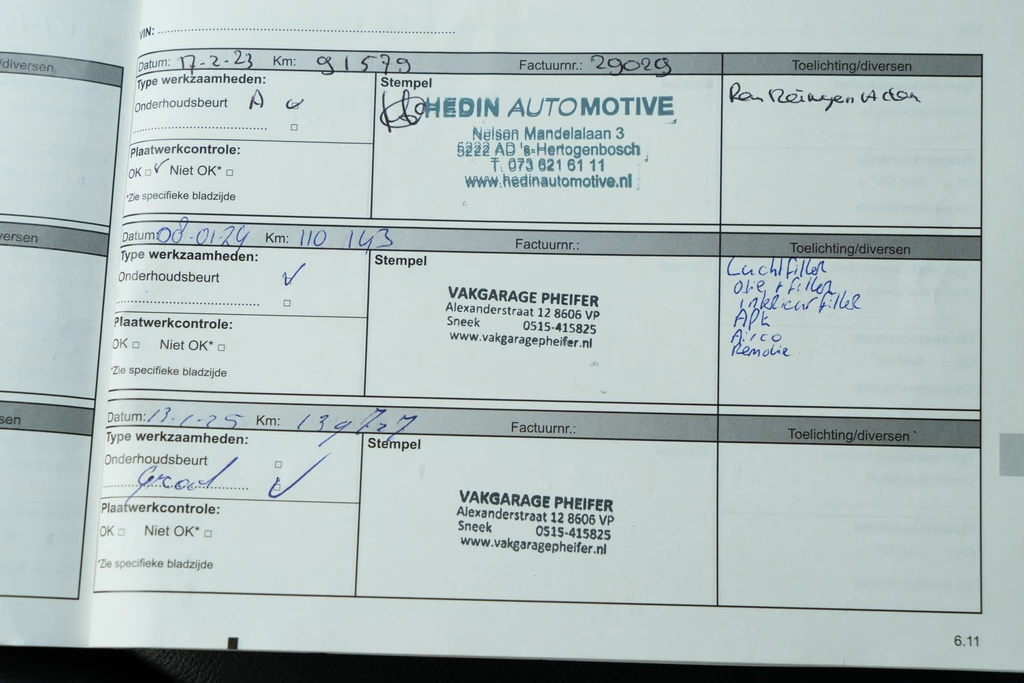 /diversen
VIN:
Datum: 17-2-23 Km: 91579 Factuurnr.: 29029 Toelichting/diversen
Type werkzaamheden: Stempel
Onderhoudsbeurt A
HEDIN AUTOMOTIVE
Nelson Mandelalaan 3
5222 AD 's-Hertogenbosch
T. 073 621 61 11
www.hedinautomotive.nl
Plaatwerkcontrole:
OK Niet OK*
*Zie specifieke bladzijde
ersen
Datum: 08-01-24 Km: 110 143 Factuurnr.: Toelichting/diversen
Type werkzaamheden: Stempel
Onderhoudsbeurt
VAKGARAGE PHEIFER
Alexanderstraat 12 8606 VP
Sneek 0515-415825
www.vakgaragepheifer.nl
Luchtfilter
olie + filter
interieurfilter
APK
Airco
Remolie
Plaatwerkcontrole:
OK Niet OK*
*Zie specifieke bladzijde
sen
Datum: 13-1-25 Km: 139727 Factuurnr.: Toelichting/diversen
Type werkzaamheden: Stempel
Onderhoudsbeurt
Groot
VAKGARAGE PHEIFER
Alexanderstraat 12 8606 VP
Sneek 0515-415825
www.vakgaragepheifer.nl
Plaatwerkcontrole:
OK Niet OK*
*Zie specifieke bladzijde
6.11